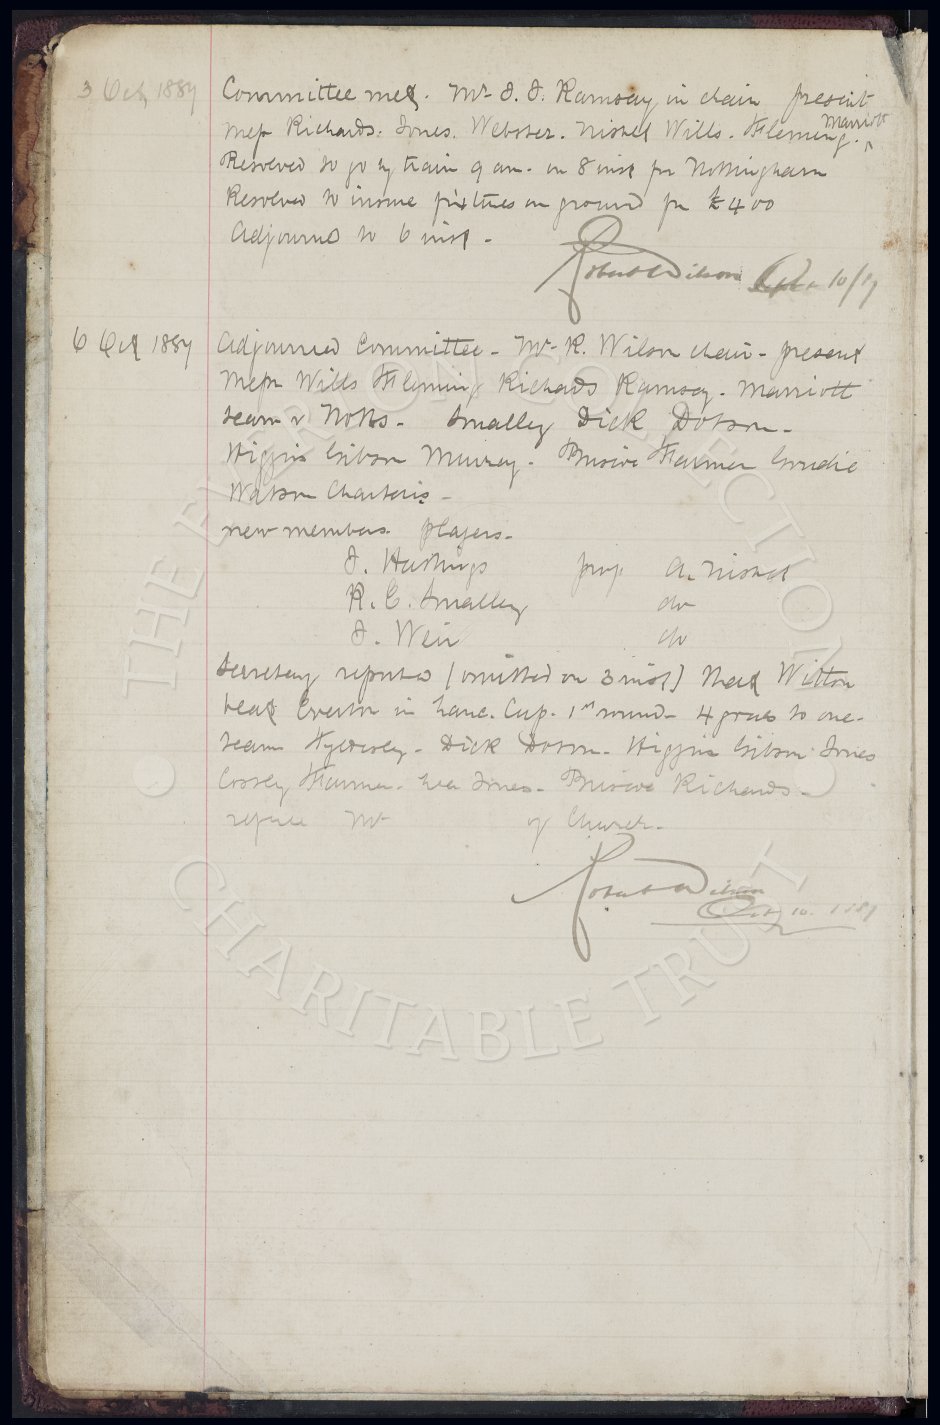 3 Oct 1887 Committee met. Mr J. J. Ramsay in chair present
Messrs Richards. Jones. Webster. Nisbet Wills. Fleming. Marriott
Resolved to go by train 9 am. on 8 inst for Nottingham
Resolved to insure fixtures on ground for £400
Adjourned to 6 inst -
Robert Wilson 10/10/87
6 Oct 1887 Adjourned Committee - Mr R. Wilson chair - present
Messrs Wills Fleming Richards Ramsay - Marriott
team v Notts - Smalley Dick Dobson -
Higgins Gibson Murray - Briscoe Farmer Goudie
Watson Charteris -
new members players -
J. Hastings prop A. Nisbet
R. C. Smalley do
J. Weir do
Secretary reported (omitted on 3 inst) that Witton
beat Everton in Lanc. Cup. 1st round - 4 goals to one -
team - Dick Dobson - Higgins Gibson Jones
Farmer - Jones - Briscoe Richards -
referee Mr of Church -
Robert Wilson
Oct 10. 1887
THE EVERTON COLLECTION
CHARITABLE TRUST